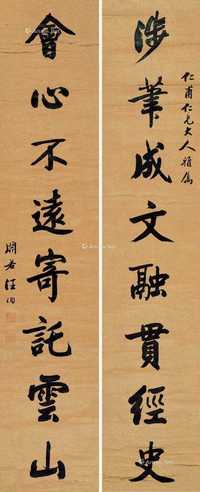 仁甫仁兄大人雅属
涉筆成文融貫經史
會心不遠寄託雲山
閬若汪洵